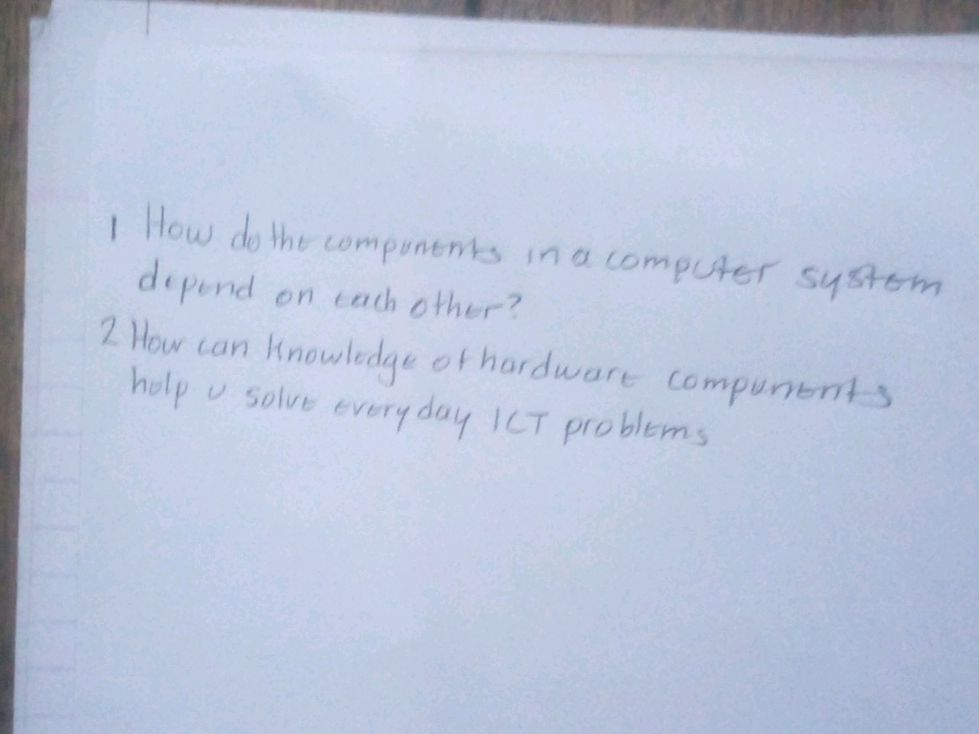 1 How do the components in a computer system
depend on each other?
2 How can knowledge of hardware components
help u solve everyday ICT problems